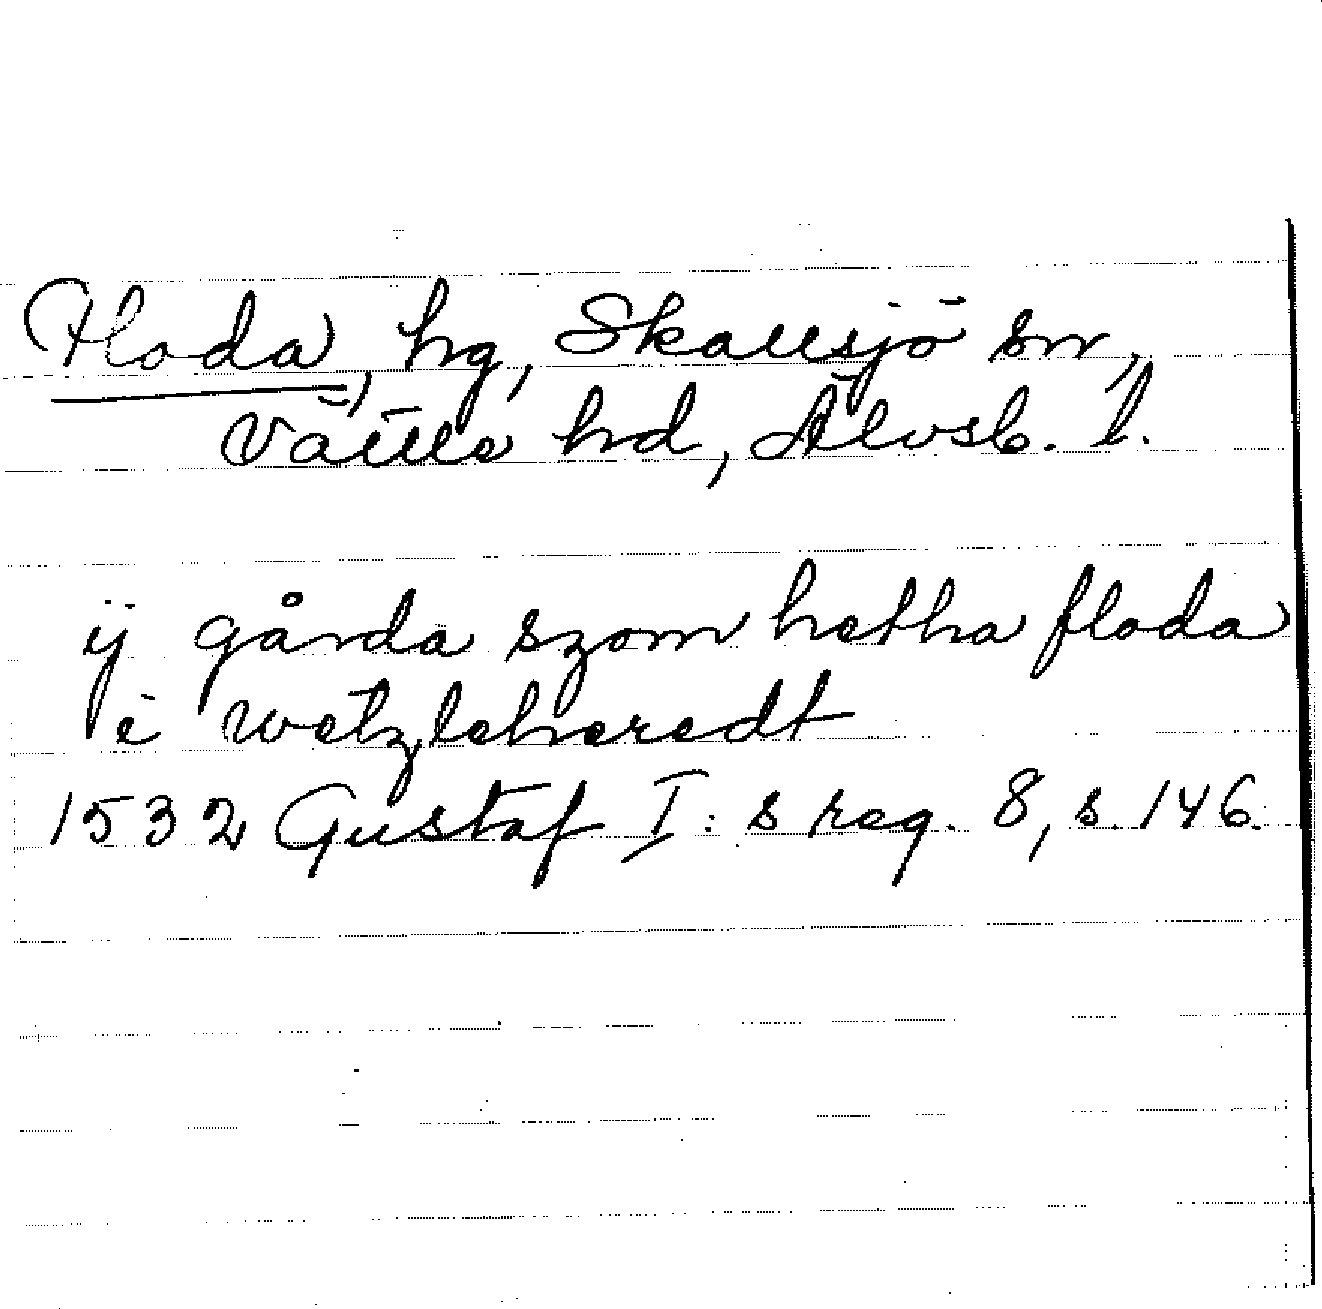 Floda, hg, Skallsjö sn,
Vättle hd, Älvsb. l.
ij gårda szom hetha floda
i wetzleheredt
1532 Gustaf I:s reg. 8, s. 146.